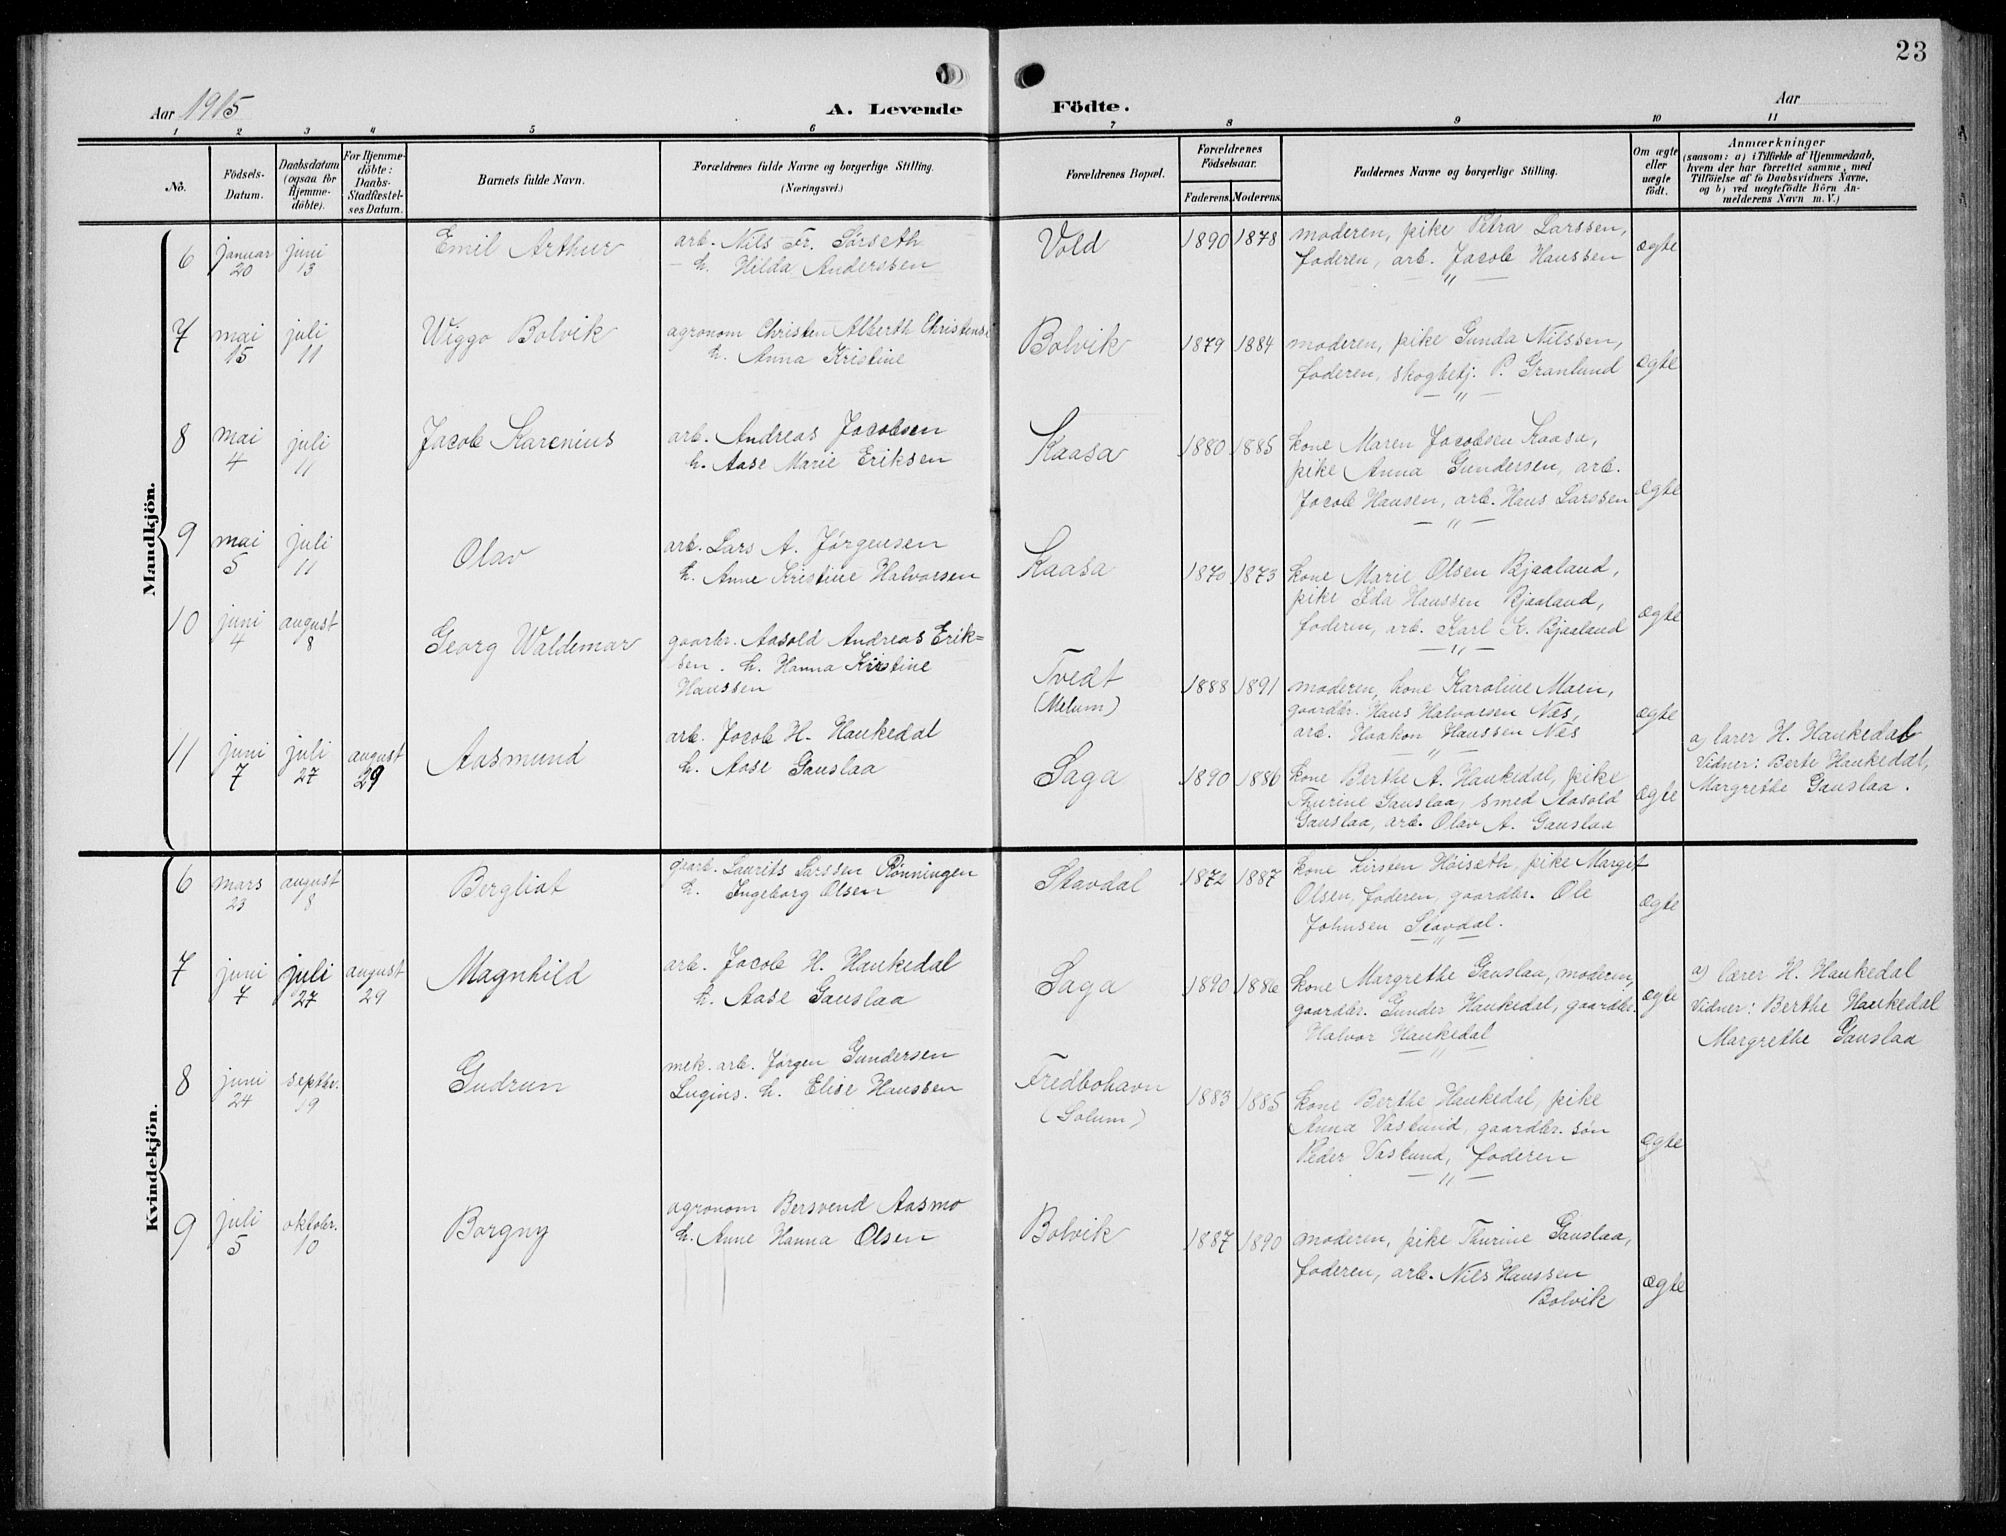 23
Aar 1915
A. Levende Födte.
Aar
1 2 3 4 5 6 7 8 9 10 11
No.
Födsels-
Datum.
Daabsdatum
(ogsaa for
Hjemme-
döbte).
For Hjemme-
döbte:
Daabs-
Stadfæstel-
ses Datum.
Barnets fulde Navn.
Forældrenes fulde Navne og borgerlige Stilling.
(Næringsvei.)
Forældrenes Bopæl.
Forældrenes
Födselsaar.
Faderens. Moderens.
Faddernes Navne og borgerlige Stilling.
Om ægte
eller
uægte
födt.
Anmærkninger
(saasom: a) i Tilfælde af Hjemmedaab,
hvem der har forrettet samme, med
Tilföielse af to Daabsvidners Navne,
og b) ved uægtefödte Börn An-
melderens Navn m. V.)
Mandkjön.
6 januar 20 juni 13 Emil Arthur
arb. Nils Fr. Sørseth
h. Hilda Anderssen
Vold 1890 1878
moderen, pike Petra Larssen,
faderen, arb. Jacob Hanssen
ægte
7 mai 15 juli 11 Wiggo Bolvik
agronom Christen Alberth Christens
h. Anna Kristine
Bolvik 1879 1884
moderen, pike Gunda Nilssen,
faderen, skogbetj. P. Granlund
ægte
8 mai 4 juli 11 Jacob Karenius
arb. Andreas Jacobsen
h. Aase Marie Eriksen
Kaasa 1880 1885
kone Maren Jacobsen Kaasa,
pike Anna Gundersen, arb.
Jacob Hansen, arb. Hans Larssen
ægte
9 mai 5 juli 11 Olav
arb. Lars A. Jørgensen
h. Anne Kristine Halvorsen
Kaasa 1870 1873
kone Marie Olsen Bjaaland,
pike Ida Hanssen Bjaaland,
faderen, arb. Karl K. Bjaaland
ægte
10 juni 4 august 8 Georg Waldemar
gaarbr. Aasold Andreas Erik=
sen. h. Hanna Kristine
Hanssen
Tvedt
(Melum)
1888 1891
moderen, kone Karoline Moen,
gaardbr. Hans Halvorsen Næs,
arb. Haakon Hanssen Næs
ægte
11 juni 7 juli 27 august 29 Aasmund
arb. Jacob H. Haukedal
h. Aase Gauslaa
Saga 1890 1886
kone Berthe A. Haukedal, pike
Thurine Gauslaa, smed Aasold
Gauslaa, arb. Olav A. Gauslaa
ægte
a) lærer H. Haukedal
Vidner: Berte Haukedal,
Margrethe Gauslaa.
Kvindekjön.
6 mars 23 august 8 Bergliot
gaarb. Laurits Larssen Rönningen
h. Ingeborg Olsen
Stavdal 1872 1887
kone Kirsten Höiseth, pike Margit
Olsen, faderen, gaardbr. Ole
Johnsen Stavdal.
ægte
7 juni 7 juli 27 august 29 Magnhild
arb. Jacob H. Haukedal
h. Aase Gauslaa
Saga 1890 1886
kone Margrethe Gauslaa, moderen,
gaardbr. Gunder Haukedal, gaardbr.
Halvor Haukedal
ægte
a) lærer H. Haukedal
Vidner: Berthe Haukedal
Margrethe Gauslaa
8 juni 24 septbr. 19 Gudrun
mek. arb. Jørgen Gundersen
h. Elise Hanssen
Fredbohavn
(Solum)
1883 1885
kone Berthe Haukedal, pike
Anna Vaslund, gaardbr. søn
Peder Vaslund, faderen
ægte
9 juli 5 oktobr. 10 Borgny
agronom Bersvend Aasmo
h. Anne Hanna Olsen
Bolvik 1887 1890
moderen, pike Thurine Gauslaa,
faderen, arb. Nils Hanssen
Bolvik
ægte